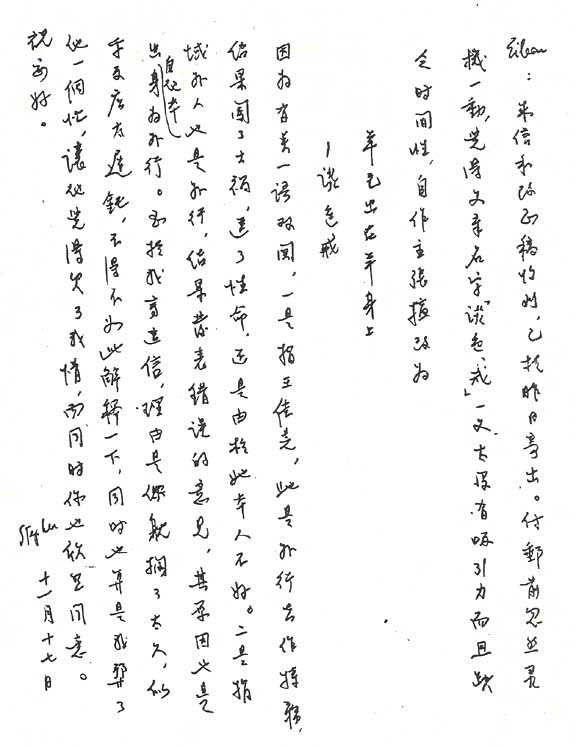 Eileen：来信和改正稿收到，已於昨日寄出。付郵前忽然灵
機一動，覺得文章名字「談『色，戒』」一文太没有吸引力而且缺
乏时间性，自作主張擅改为
羊毛出在羊身上
—談色戒
因为有关一語双関，一是指王佳芝，她是外行去作特務，
结果闯了大祸，送了性命，还是由於她本人不好。二是指
域外人也是外行，结果發表錯误的意見，其原因也是
出自他本身为外行。至於我寄這信，理由是你躭擱了太久，似
乎反應太遲鈍，不得不如此解釋一下，同时也算是我幫了
他一個忙，讓他覺得欠了我情，而同时你也欣然同意。
祝安好。
Stephen 十一月十七日